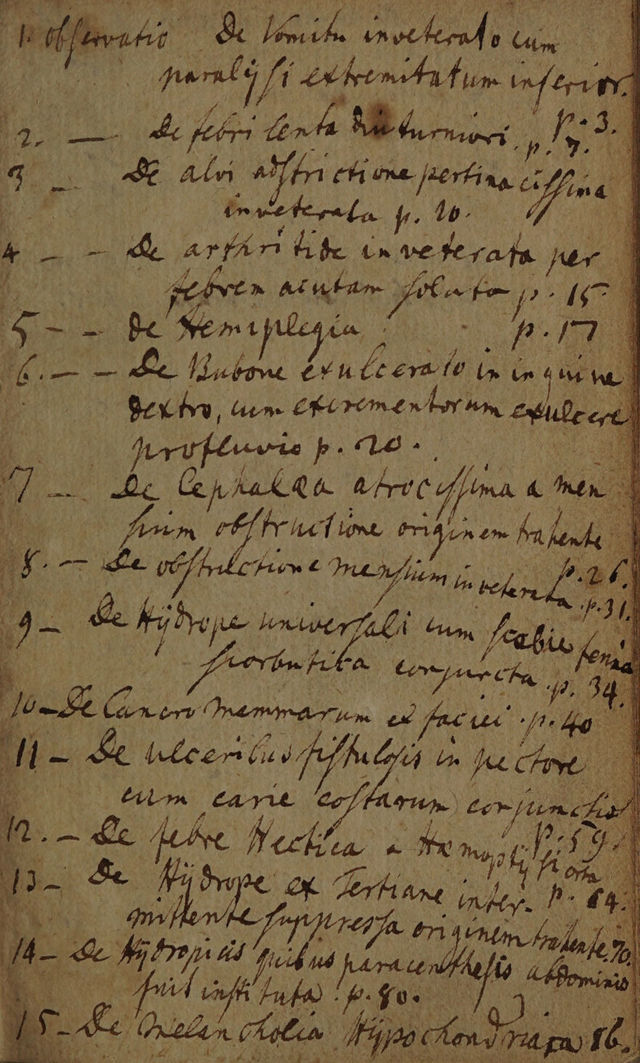 1. observatio De Vomitu inveterato cum
paralysi extremitatum inferior.
p. 3.
2. — De febri lenta diuturniori. p. 7.
3 — De alvi adstrictione pertinacissima
inveterata p. 10.
4 — – De arthritide inveterata per
febrem acutam soluta p. 15
5 – – de Hemiplegia p. 17
6. – – De Bubone exulcerato in inguine
dextro, cum excrementorum ex ulcere
profluvio p. 20.
7 — De Cephalæa atrocissima a men
sium obstructione originem trahente
p. 26.
8. – De obstructione mensium inveterata . p. 31.
9 – De Hÿdrope universali cum scabie ferina
scorbutica conjuncta . p. 34.
10 – De Cancro mammarum et faciei . p. 40
11 – De ulceribus fistulosis in pectore
cum carie costarum conjunctis
p. 59.
12. – De febre Hectica a Hæmoptÿsi orta
p. 64.
13 – De Hÿdrope ex Tertiane inter-
mittente suppressa originem trahente. 70.
14 – De Hÿdropicis quibus paracenthesis abdominis
fuit instituta . p. 80.
15 – De Melancholia Hÿpochondriaca 86.